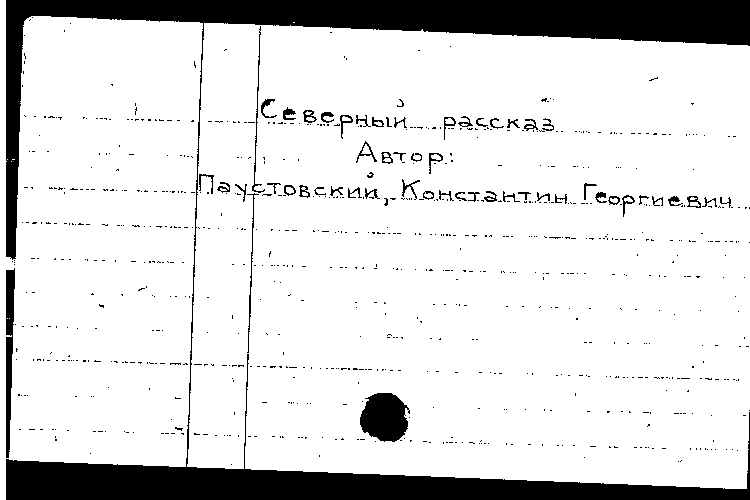 Северный рассказ
Автор:
Паустовский, Константин Георгиевич